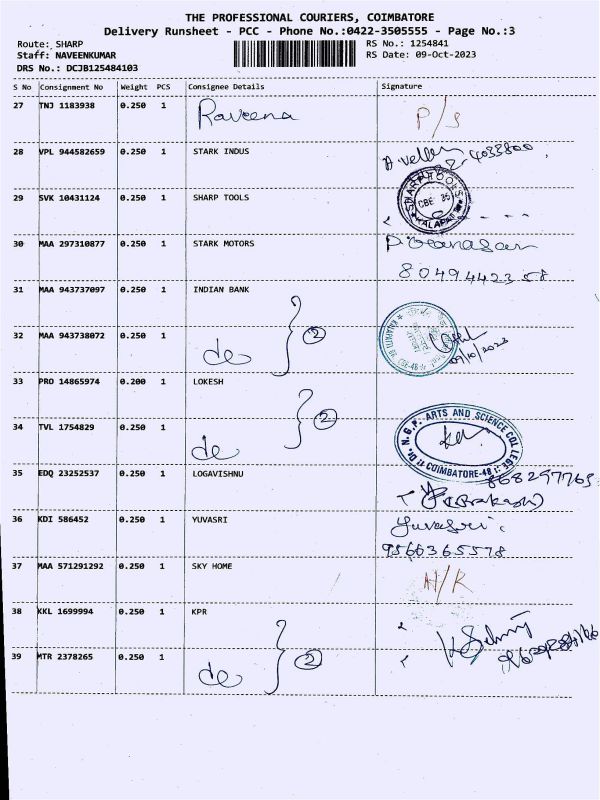 THE PROFESSIONAL COURIERS, COIMBATORE
Delivery Runsheet - PCC - Phone No.:0422-3505555 - Page No.:3
Route: SHARP
RS No.: 1254841
Staff: NAVEENKUMAR
RS Date: 09-Oct-2023
DRS No.: DCJB125484103
S No Consignment No Weight PCS Consignee Details Signature
27 TNJ 1183938 0.250 1 Raveena P/S
28 VPL 944582659 0.250 1 STARK INDUS
29 SVK 10431124 0.250 1 SHARP TOOLS SHARP TOOLS CBE 35
30 MAA 297310877 0.250 1 STARK MOTORS
8049442358
31 MAA 943737097 0.250 1 INDIAN BANK
32 MAA 943738072 0.250 1 do 2 09/10/2023
33 PRO 14865974 0.200 1 LOKESH
34 TVL 1754829 0.250 1 do 2 Dr. N.G.P. ARTS AND SCIENCE COLLEGE COIMBATORE-48
35 EDQ 23252537 0.250 1 LOGAVISHNU 868297765
(Prakash)
36 KDI 586452 0.250 1 YUVASRI Yuvasri
9566365578
37 MAA 571291292 0.250 1 SKY HOME N/R
38 KKL 1699994 0.250 1 KPR
39 MTR 2378265 0.250 1 do 2